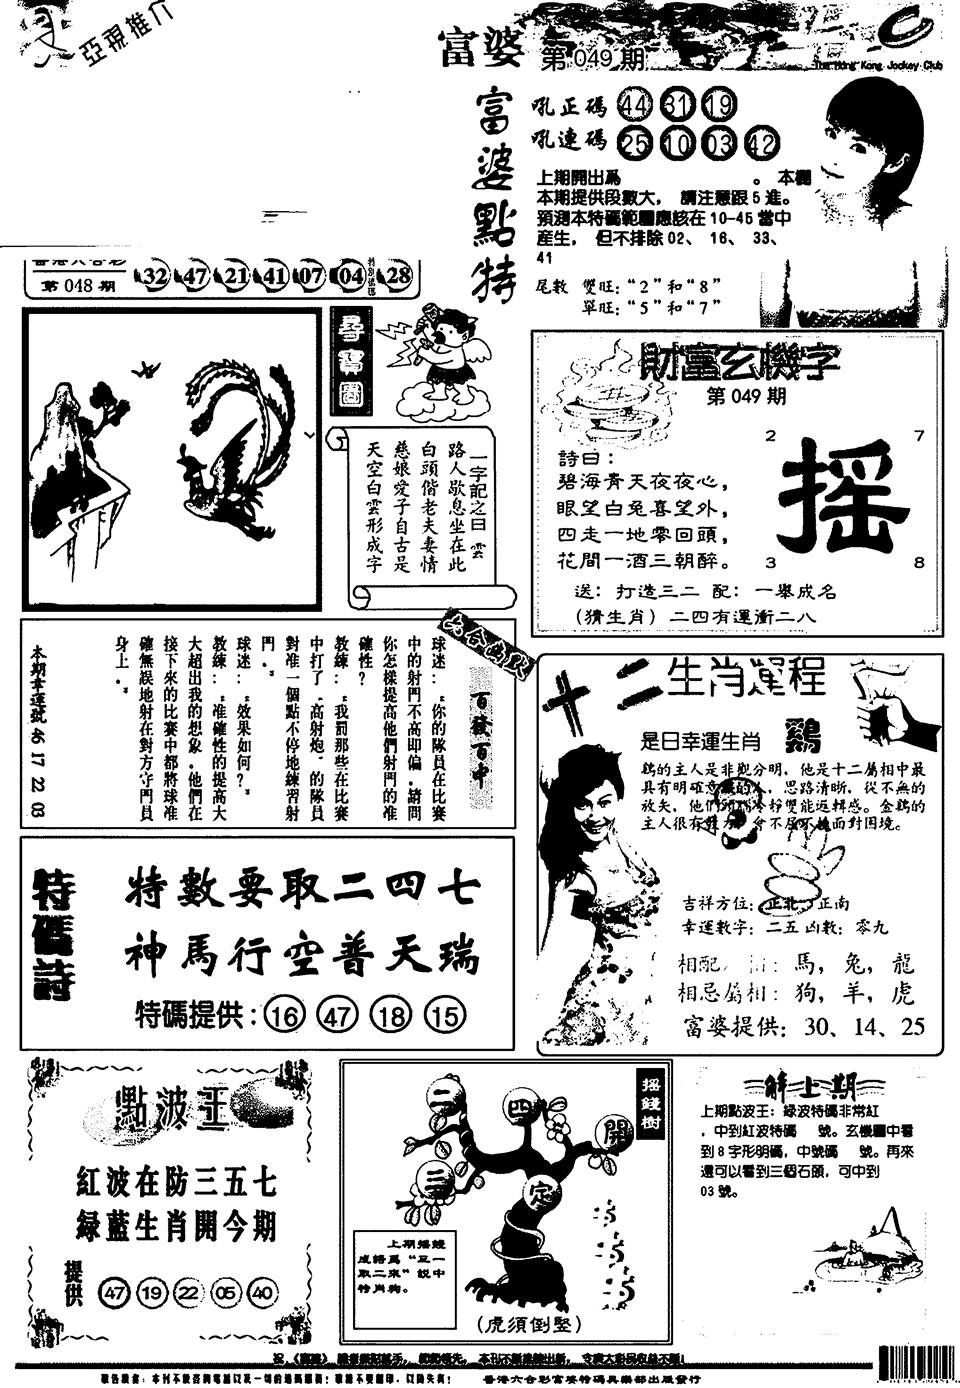 亞視推介
富婆
第 049 期
The Hong Kong Jockey Club
富婆點特
吼正碼 44 31 19
吼連碼 25 10 03 42
上期開出爲 。 本欄
本期提供段數大， 請注意跟 5 進。
預測本特碼範圍應該在 10-45 當中
產生， 但不排除 02、 16、 33、
41
尾數 雙旺：“2”和“8”
單旺：“5”和“7”
香港六合彩
第 048 期
32 47 21 41 07 04 特別號碼 28
尋寶圖
一字記之曰 雲
路人歇息坐在此
白頭偕老夫妻情
慈娘愛子自古是
天空白雲形成字
財富玄機字
第 049 期
詩曰：
碧海青天夜夜心，
眼望白兔喜望外，
四走一地零回頭，
花間一酒三朝醉。
2 7
搖
3 8
送： 打造三二 配： 一舉成名
（猜生肖）二四有運衝二八
六合幽默
百發百中
球迷：“你的隊員在比賽
中的射門不高即偏，請問
你怎樣提高他們射門的准
確性？
教練：“我罰那些在比賽
中打了‘高射炮’的隊員
對准一個點不停地練習射
門”。
球迷：“效果如何？”
教練：“准確性的提高大
大超出我的想象。他們在
接下來的比賽中都將球准
確無誤地射在對方守門員
身上。”
本期幸運號 46 17 22 03
十二生肖運程
是日幸運生肖 鷄
鷄的主人是非觀分明，他是十二屬相中最
具有明確意識的人，思路清晰，從不無的
放矢，他們
主人很有 面對困境。
吉祥方位：正北、正南
幸運數字：二五 凶數：零九
相配屬相：馬，兔，龍
相忌屬相：狗，羊，虎
富婆提供：30、14、25
特碼詩
特數要取二四七
神馬行空普天瑞
特碼提供：16 47 18 15
點波王
紅波在防三五七
綠藍生肖開今期
提供 47 19 22 05 40
搖錢樹
二 四 開
三 定
上期搖錢
成語爲“五一
取二來”説中
特肖狗。
（虎須倒豎）
解上期
上期點波王：綠波特碼非常紅
，中到紅波特碼 號。玄機圖中看
到 8 字形明碼，中號碼 號。再來
還可以看到三個石頭，可中到
03 號。
香港六合彩富婆特碼俱樂部出版發行